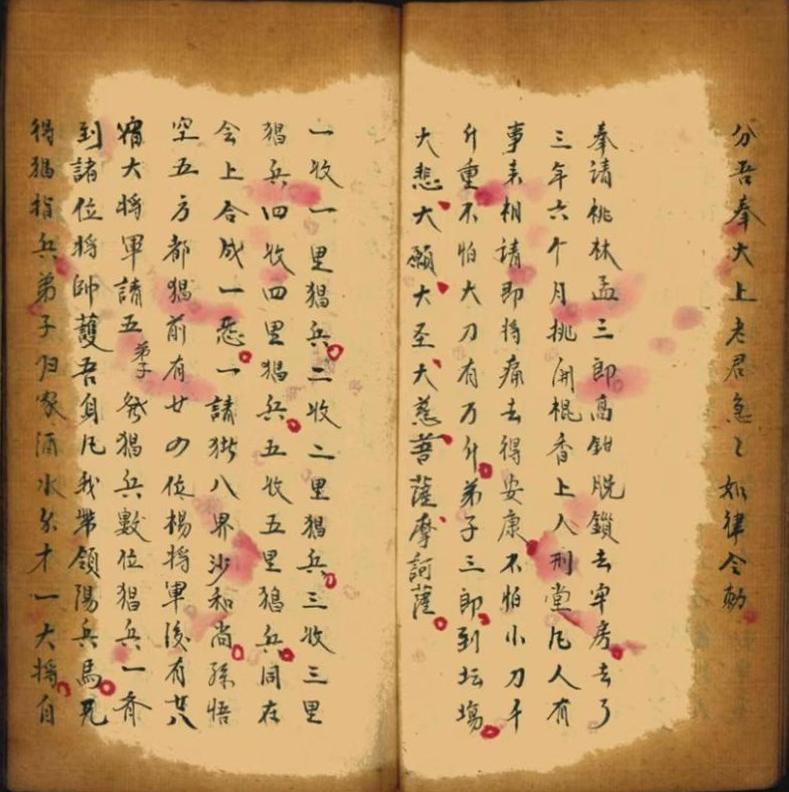 分吾奉大上老君急々如律令勅
奉請桃林孟三郎高鉗脱鎖去牢房去了
三年六个月挑開棍香上人刑堂凡人有
事来相請即将痛去得安康不怕小刀千
斤重不怕大刀有万斤弟子三郎到坛塲
大悲大願大圣大慈菩薩摩訶薩
一收一里猖兵二收二里猖兵三收三里
猖兵四收四里猖兵五收五里猖兵同在
会上合成一悉一請八界沙和尚孫悟
空五方都猖前有廿四位楊將軍後有廿八
宿大將軍請五弟子祭猖兵數位猖兵一齊
到諸位將帥護吾身凡我带領陽兵馬
得猖指兵弟子归家酒水分才一大自